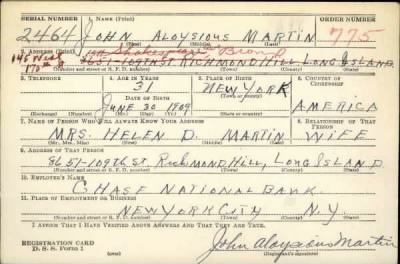 SERIAL NUMBER 1. NAME (Print) ORDER NUMBER (Print)
2464 JOHN ALOYSIOUS MARTIN 775
(First) (Middle) (Last)
2. ADDRESS (Print)
145 West 170 St
8651-109TH ST. RICHMOND HILL LONG ISLAND
(Number and street or R. F. D. number) (Town) (County) (State)
3. TELEPHONE 4. AGE IN YEARS 5. PLACE OF BIRTH 6. COUNTRY OF CITIZENSHIP
31 NEW YORK
DATE OF BIRTH (Town or county)
JUNE 30 1909 AMERICA
(Exchange) (Number) (Mo.) (Day) (Yr.) (State or country)
7. NAME OF PERSON WHO WILL ALWAYS KNOW YOUR ADDRESS 8. RELATIONSHIP OF THAT PERSON
MRS. HELEN D. MARTIN WIFE
(Mr., Mrs., Miss) (First) (Middle) (Last)
9. ADDRESS OF THAT PERSON
8651-109TH ST. RICHMOND HILL, LONG ISLAND
(Number and street or R. F. D. number) (Town) (County) (State)
10. EMPLOYER'S NAME
CHASE NATIONAL BANK.
11. PLACE OF EMPLOYMENT OR BUSINESS
NEW YORK CITY N.Y
(Number and street or R. F. D. number) (Town) (County) (State)
I AFFIRM THAT I HAVE VERIFIED ABOVE ANSWERS AND THAT THEY ARE TRUE.
REGISTRATION CARD
D. S. S. Form 1 John Aloysious Martin